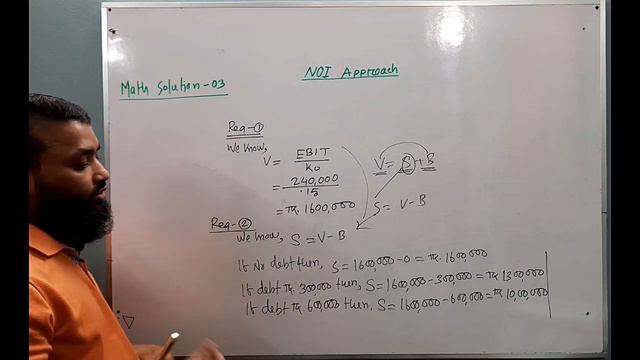 NOI Approach
Math Solution-03
Req-①
We know,
V = EBIT / Ko
= 240,000 / .15
= Tk. 1600,000
V = S + B
S = V-B
Req-②
We know, S = V-B
If No debt then, S = 1600,000-0 = Tk. 1600,000
If debt Tk. 300000 then, S = 1600,000-300,000 = Tk 1300,000
If debt Tk. 600000 then, S = 1600,000-600,000 = Tk 10,00,000